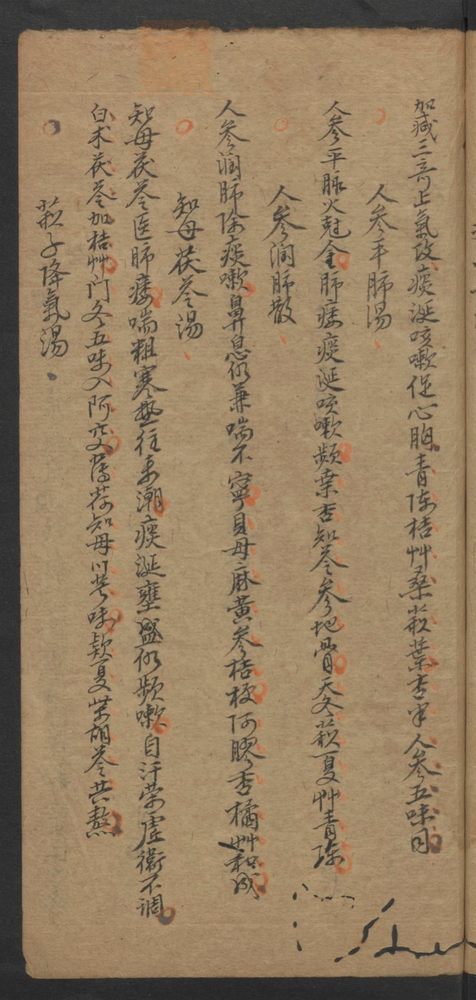 加减三奇止氣改痰涎咳嗽促心胸青陈桔艸桑蘇葉杏半人参五味同
人参平肺湯
人参平脉火尅金肺痿痰涎咳嗽频桑杏知苓参地骨天冬蘇夏艸青陈
人参润肺散
人参润肺除痰嗽鼻息仍兼喘不寧貝母麻黄参桔梗阿膠杏橘艸和成
知母茯苓湯
知母茯苓医肺痿喘粗寒熱往来潮痰涎壅盛仍频嗽自汗荣虚衛不調
白术茯苓加桔艸门冬五味入阿薄荷知母川芎味款夏柴胡苓共熬
蘇子降氣湯